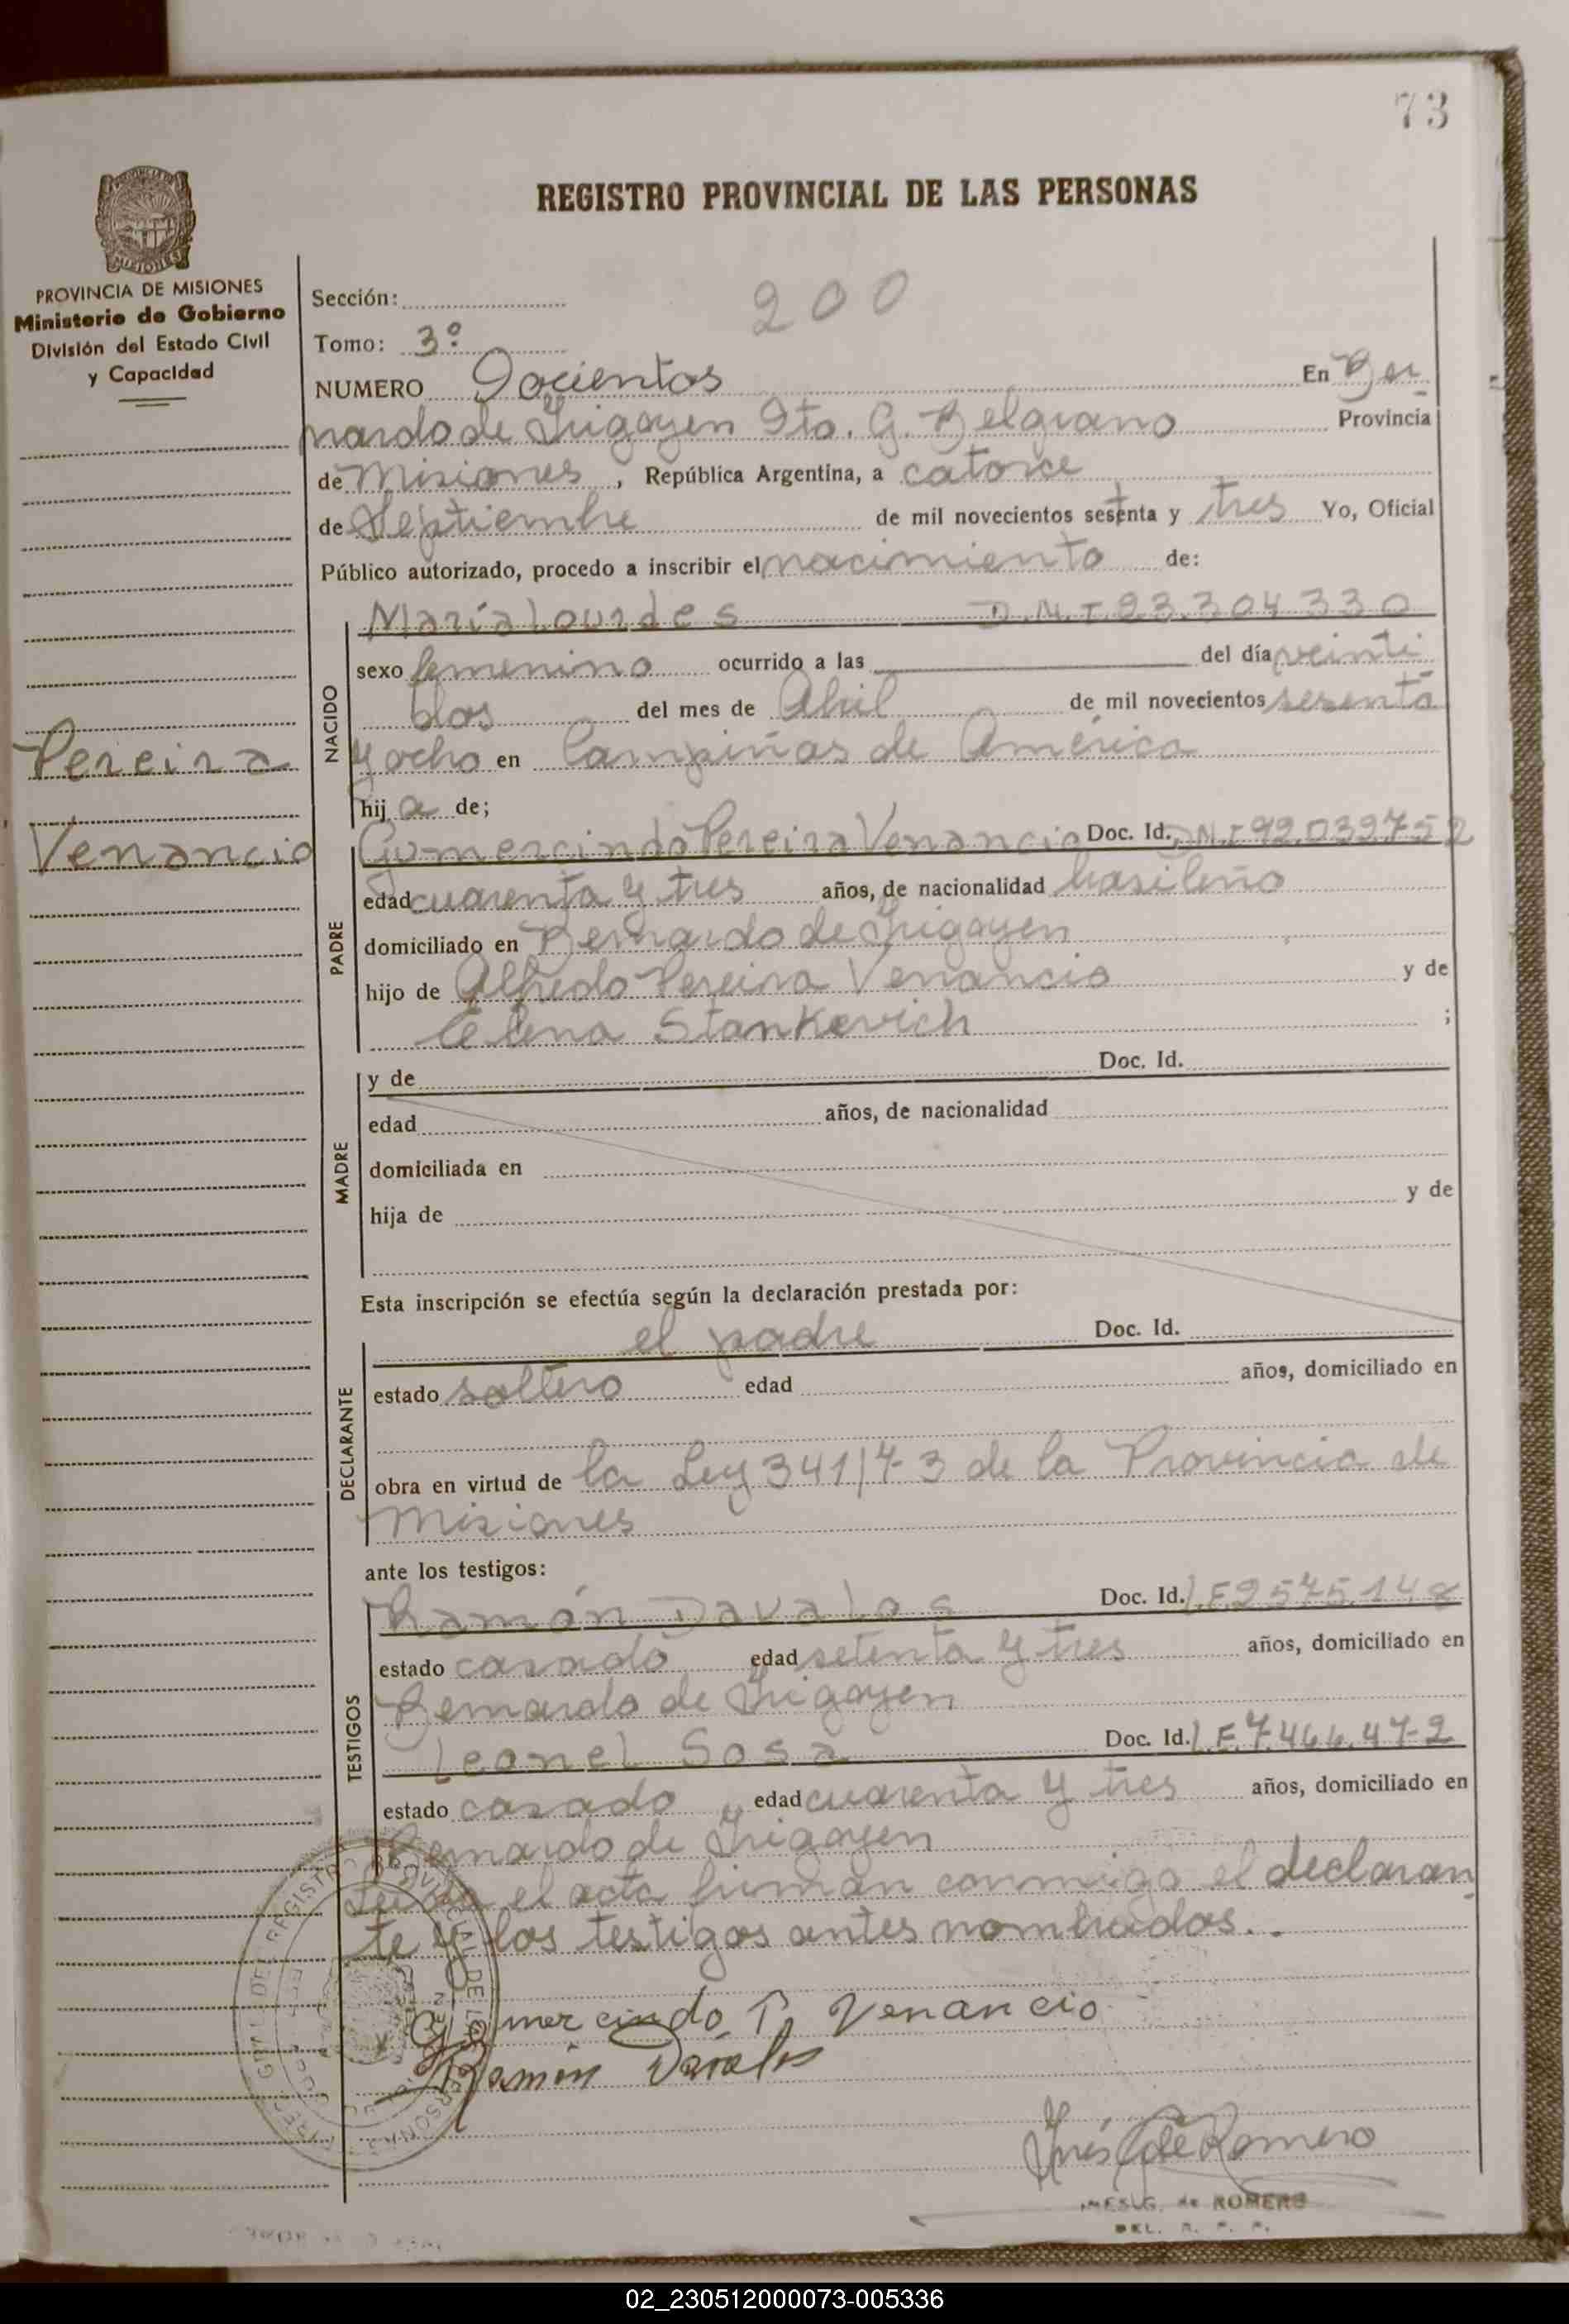 73
REGISTRO PROVINCIAL DE LAS PERSONAS
PROVINCIA DE MISIONES
Ministerio de Gobierno
División del Estado Civil
y Capacidad
Sección:
200
Tomo: 3º
NUMERO Docientos En Ber
nardo de Irigoyen Dto. G. Belgrano Provincia
de Misiones, República Argentina, a catorce
de Septiembre de mil novecientos setenta y tres Yo, Oficial
Público autorizado, procedo a inscribir el nacimiento de:
María Lourdes D.N.I 23.304.330
NACIDO
sexo femenino ocurrido a las del día veinti
dos del mes de Abril de mil novecientos sesenta
y ocho en Campiñas de América
Pereira
hija de;
Venancio
Gumercindo Pereira Venancio Doc. Id. DNI 92.039752
PADRE
edad cuarenta y tres años, de nacionalidad brasileño
domiciliado en Bernardo de Irigoyen
hijo de Alfredo Pereira Venancio y de
Elena Stankevich ;
MADRE
y de Doc. Id.
edad años, de nacionalidad
domiciliada en
hija de y de
Esta inscripción se efectúa según la declaración prestada por:
DECLARANTE
el padre Doc. Id.
estado soltero edad años, domiciliado en
obra en virtud de la Ley 341/73 de la Provincia de
Misiones
ante los testigos:
TESTIGOS
Ramón Davalos Doc. Id. L.E 2575.148
estado casado edad setenta y tres años, domiciliado en
Bernardo de Irigoyen
Leonel Sosa Doc. Id. L.E.7.466.472
estado casado edad cuarenta y tres años, domiciliado en
Bernardo de Irigoyen
Leída el acta firman conmigo el declaran
te y los testigos antes nombrados..
Gumercindo P. Venancio
Ramón Davalos
Inés G de Romero
INES G. de ROMERO
DEL. R. P. P.
02_230512000073-005336